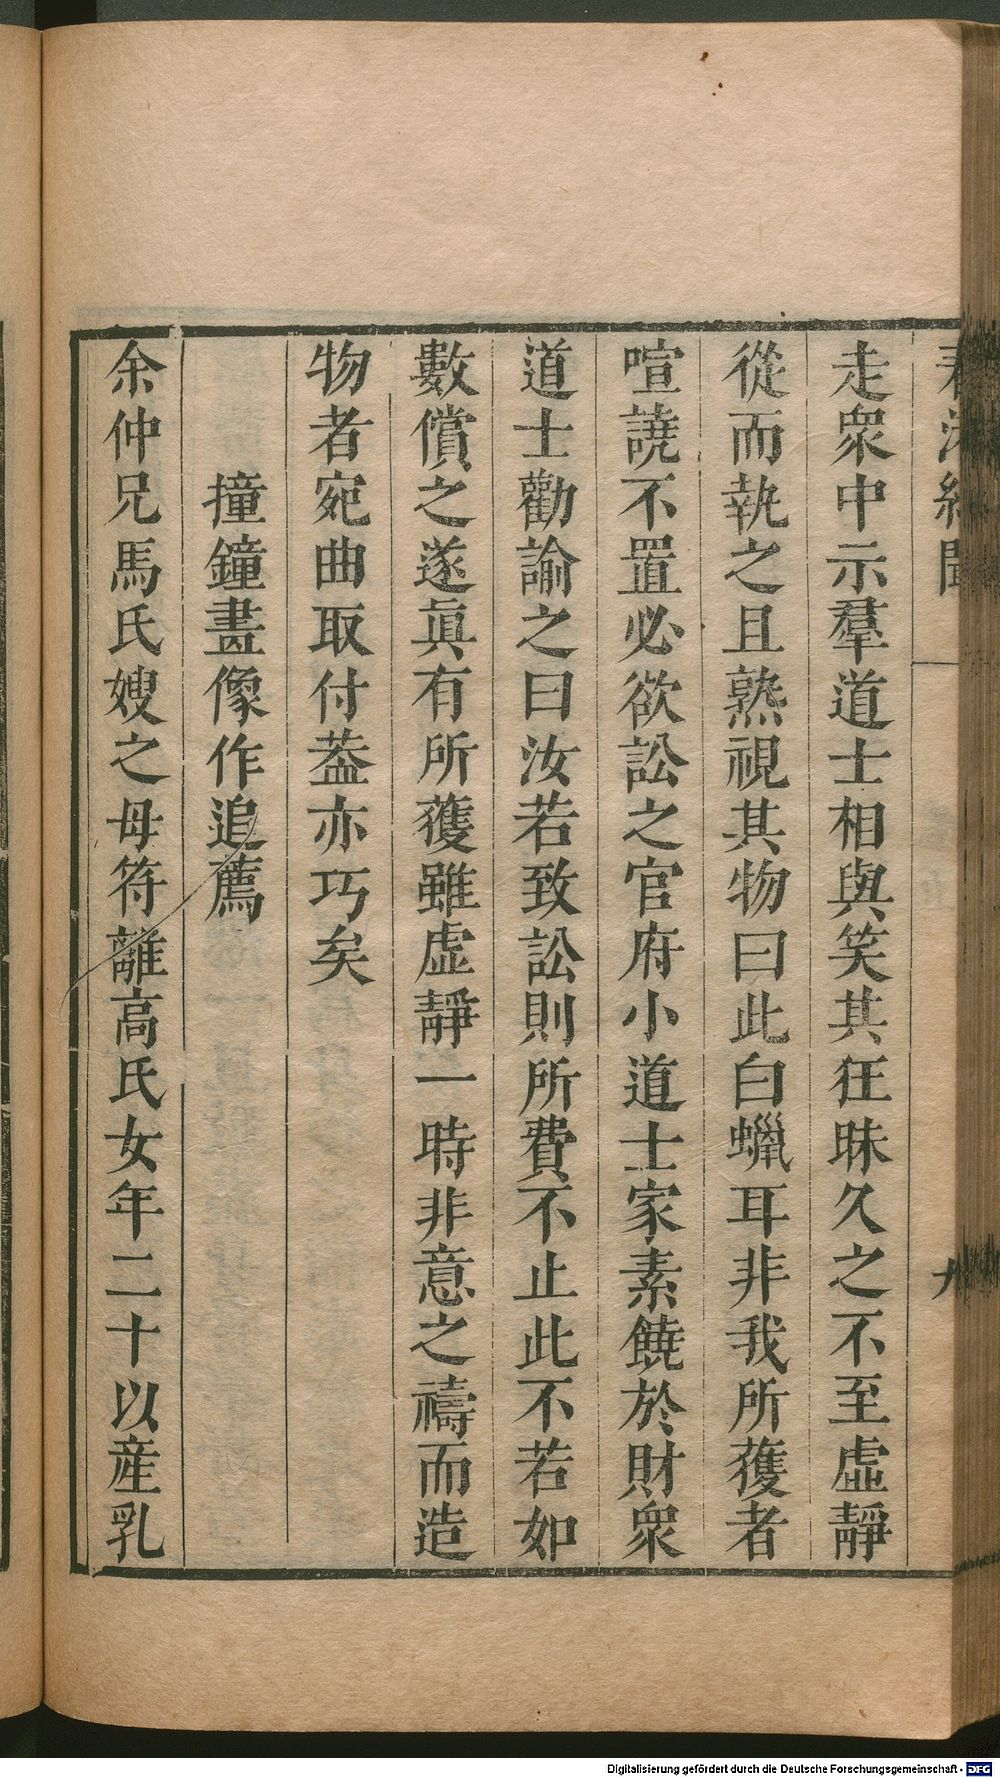 春渚紀聞
九
走衆中示羣道士相與笑其狂昧久之不至虛靜
從而執之且熟視其物曰此白蠟耳非我所獲者
喧譊不置必欲訟之官府小道士家素饒於財衆
道士勸諭之曰汝若致訟則所費不止此不若如
數償之遂眞有所獲雖虛靜一時非意之禱而造
物者宛曲取付葢亦巧矣
撞鐘畫像作追薦
余仲兄馬氏嫂之母符離高氏女年二十以産乳
Digitalisierung gefördert durch die Deutsche Forschungsgemeinschaft - DFG